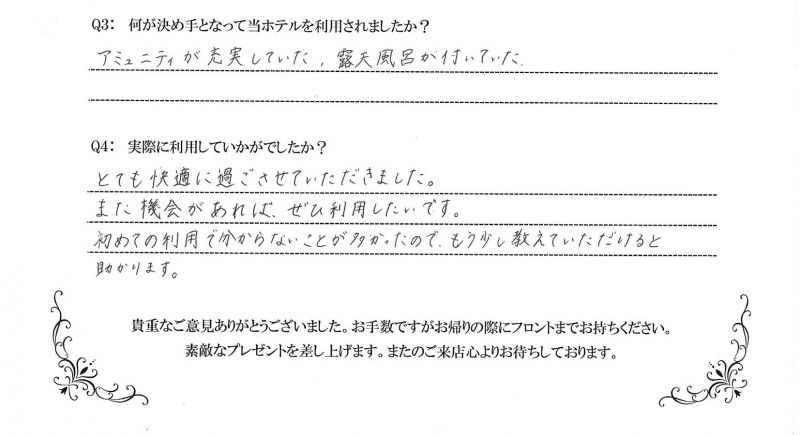 Q3: 何が決め手となって当ホテルを利用されましたか？
アミュニティが充実していた，露天風呂が付いていた.
Q4: 実際に利用していかがでしたか？
とても快適に過ごさせていただきました。
また機会があれば、ぜひ利用したいです。
初めての利用で分からないことが多かったので、もう少し教えていただけると
助かります。
貴重なご意見ありがとうございました。お手数ですがお帰りの際にフロントまでお持ちください。
素敵なプレゼントを差し上げます。またのご来店心よりお待ちしております。